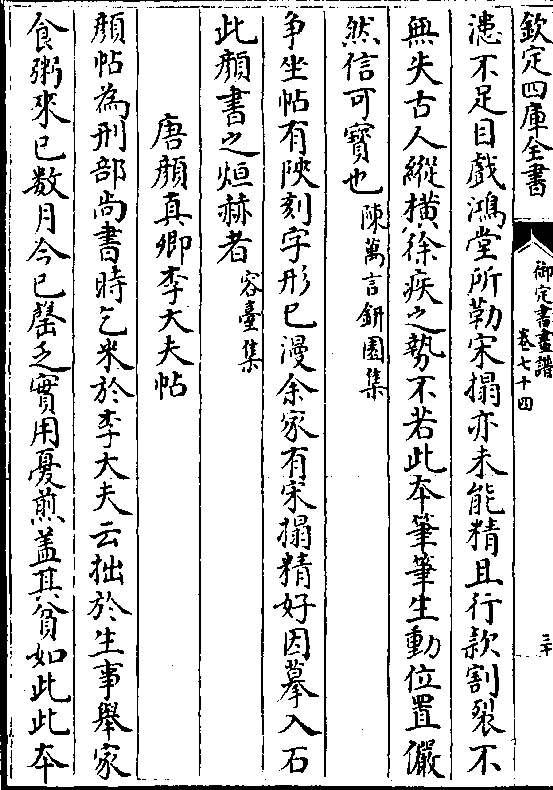 欽定四庫全書
御定書畫譜
卷七十四
三十
漶不足目戲鴻堂所勒宋搨亦未能精且行款割裂不
無失古人縱橫徐疾之勢不若此本筆筆生動位置儼
然信可寶也陳萬言鈃園集
争坐帖有陜刻字形已漫余家有宋搨精好因摹入石
此顔書之烜赫者容臺集
唐顔真卿李大夫帖
顔帖為刑部尚書時乞米於李大夫云拙於生事舉家
食粥來已數月今已罄乏實用憂煎盖其貧如此此本